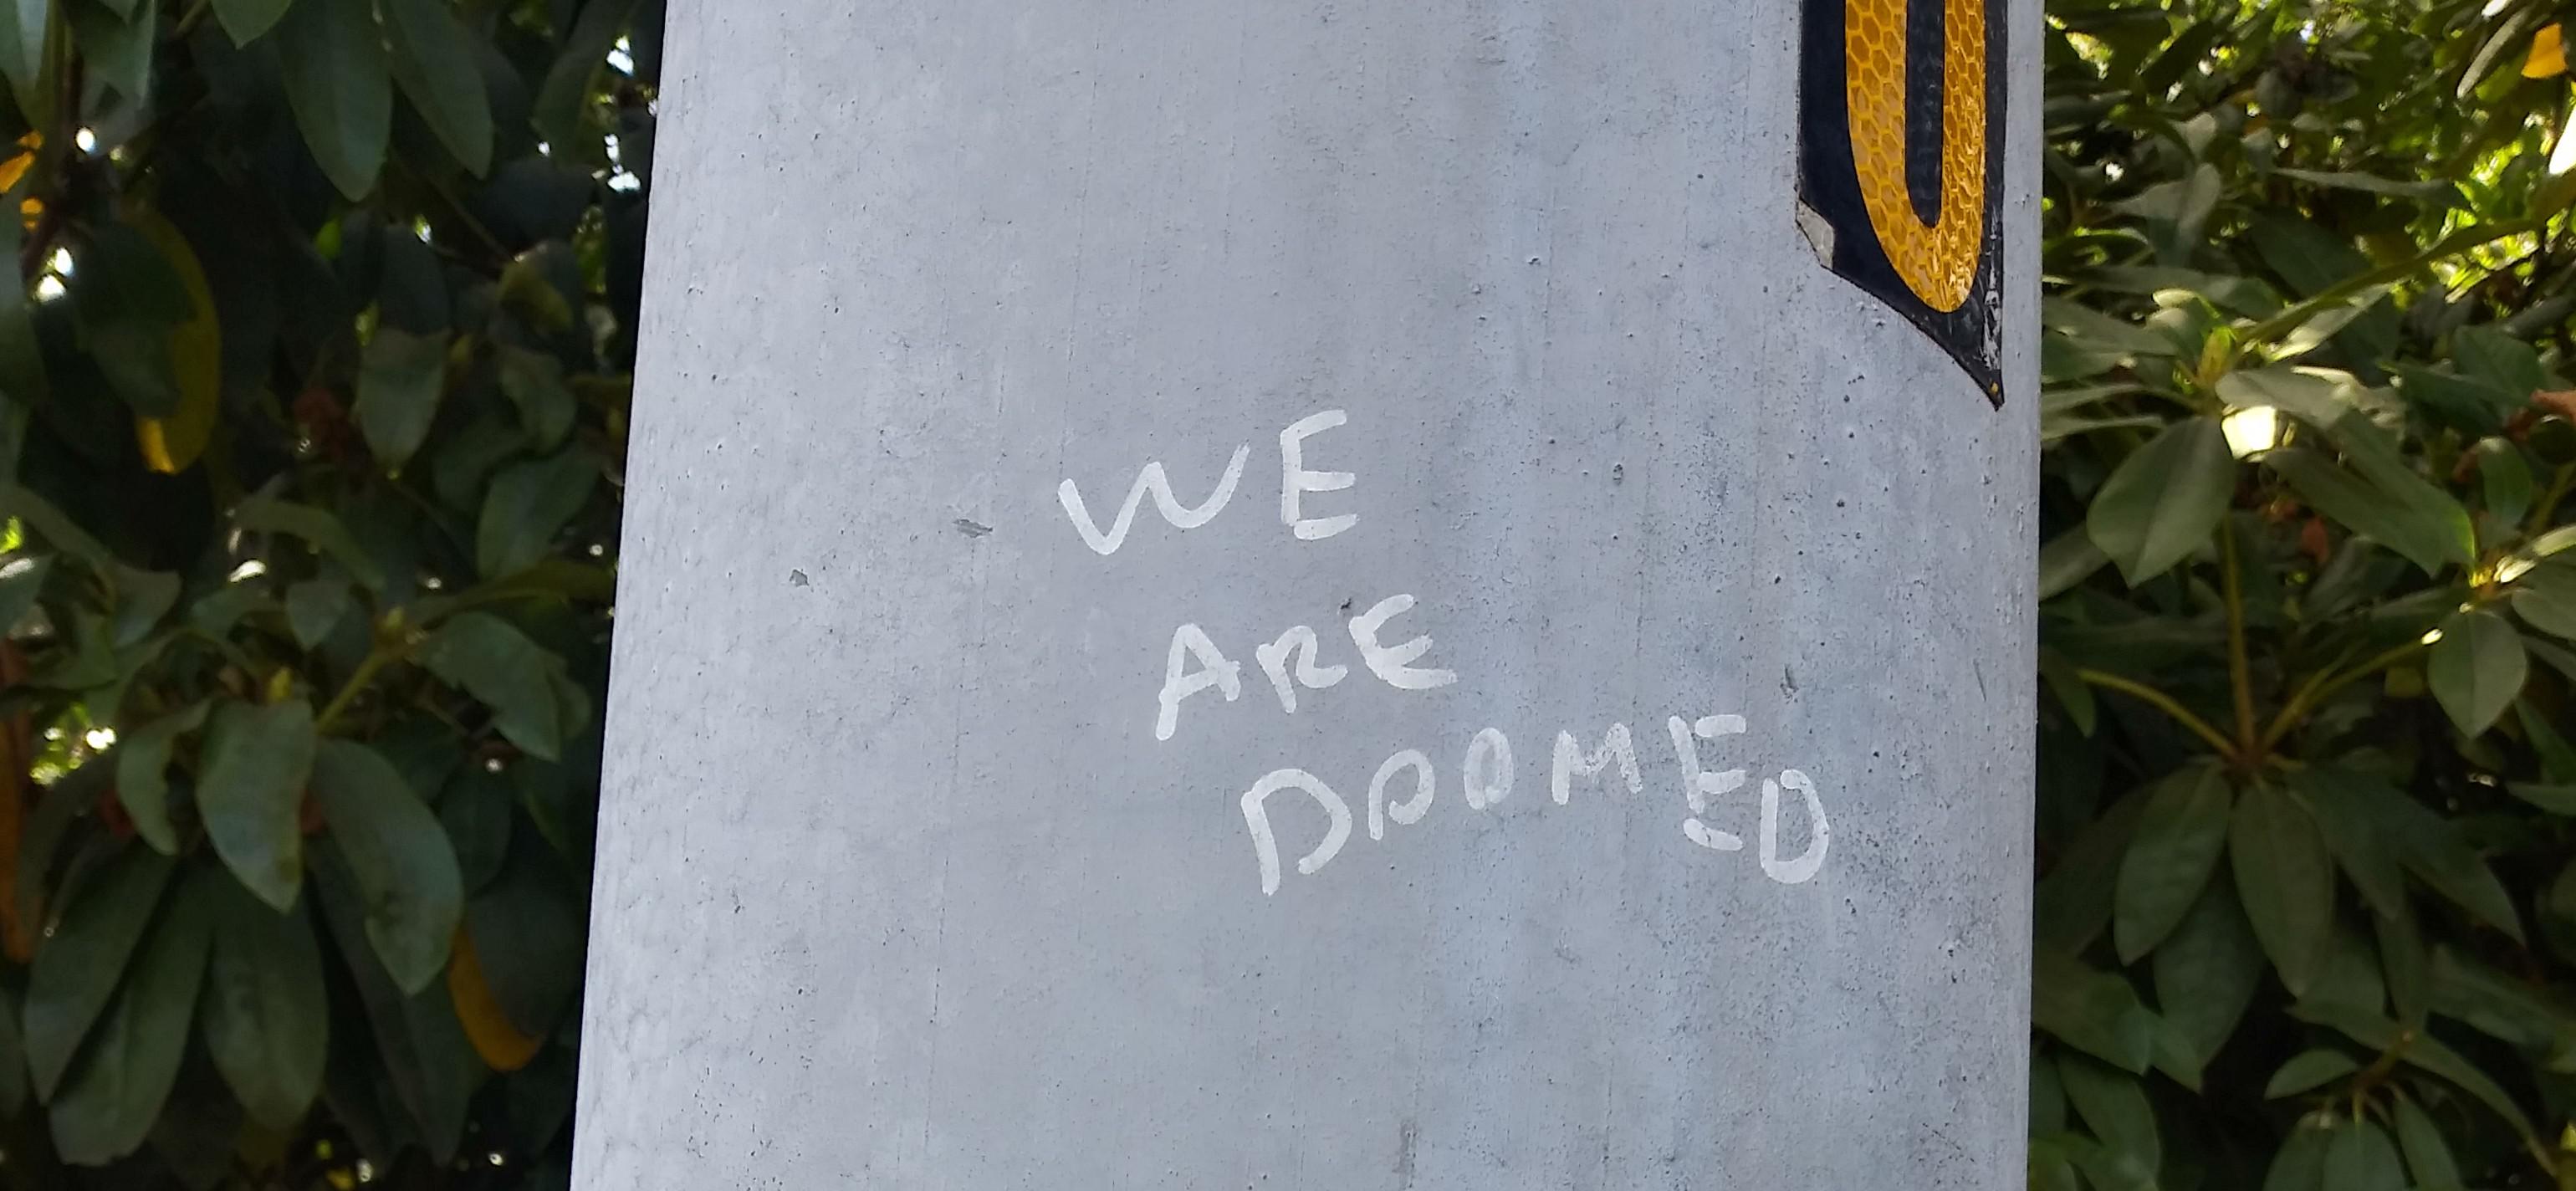 WE
ARE
DOOMED